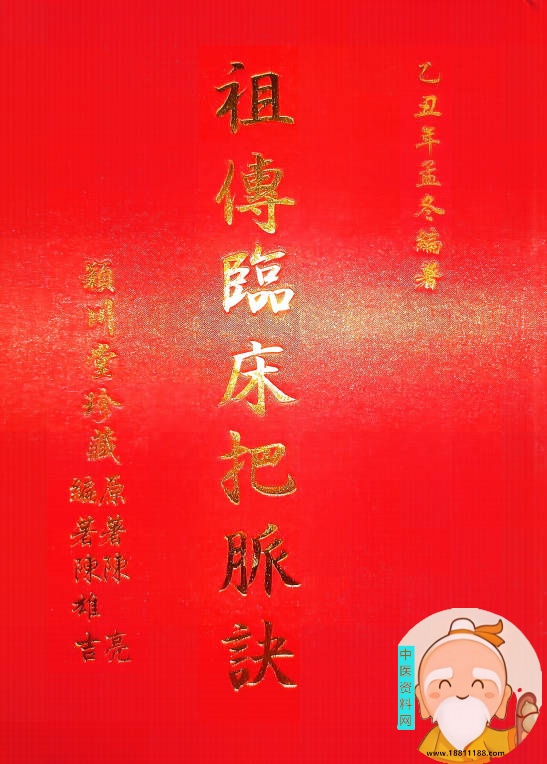 乙丑年孟冬編著
祖傳臨床把脈訣
穎川堂珍藏
原著陳亮
編著陳雄吉
中医资料网
www.18811188.com